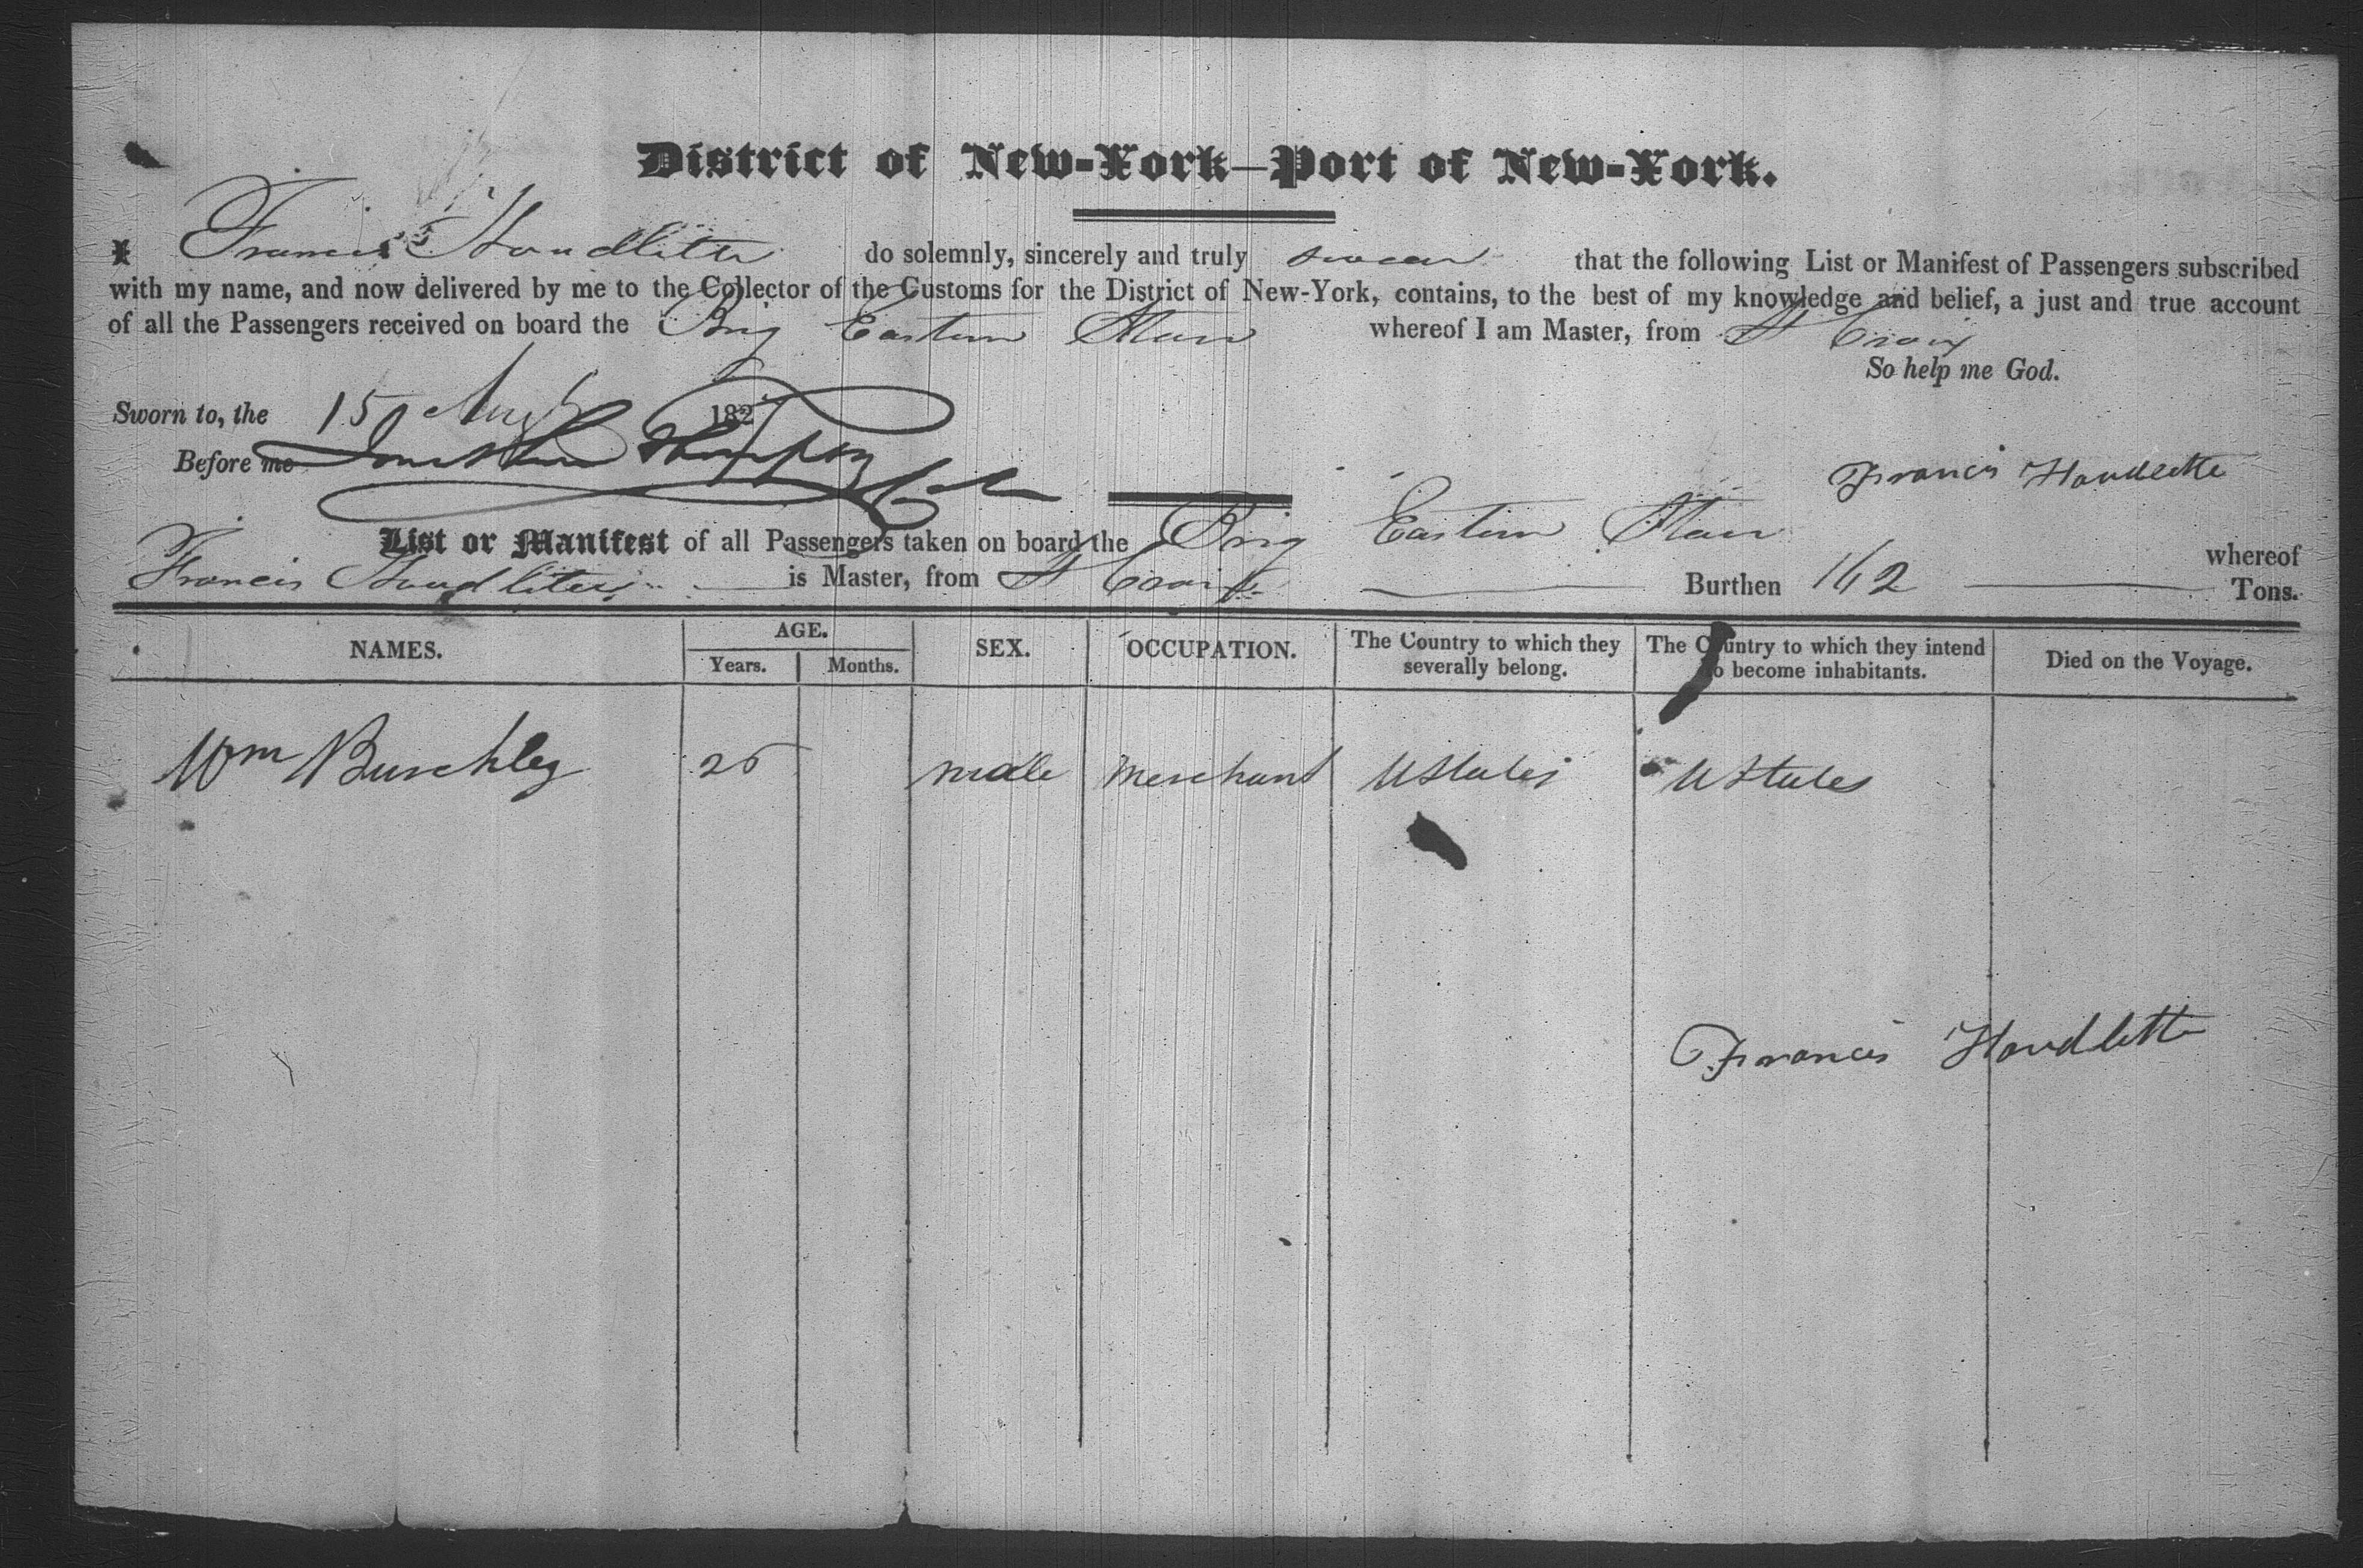 District of New-York—Port of New-York.
I Francis Houdlette do solemnly, sincerely and truly swear that the following List or Manifest of Passengers subscribed
with my name, and now delivered by me to the Collector of the Customs for the District of New-York, contains, to the best of my knowledge and belief, a just and true account
of all the Passengers received on board the Brig Eastern Star whereof I am Master, from St Croix
So help me God.
Sworn to, the 15 Augt 182
Before me Jonathan Thompson
Francis Houdlette
List or Manifest of all Passengers taken on board the Brig Eastern Star whereof
Francis Houdlette is Master, from St Croix Burthen 162 Tons.
NAMES. AGE. SEX. OCCUPATION. The Country to which they severally belong. The Country to which they intend to become inhabitants. Died on the Voyage.
Years. Months.
Wm Burchley 25 male Merchant UStates UStates
Francis Houdlette